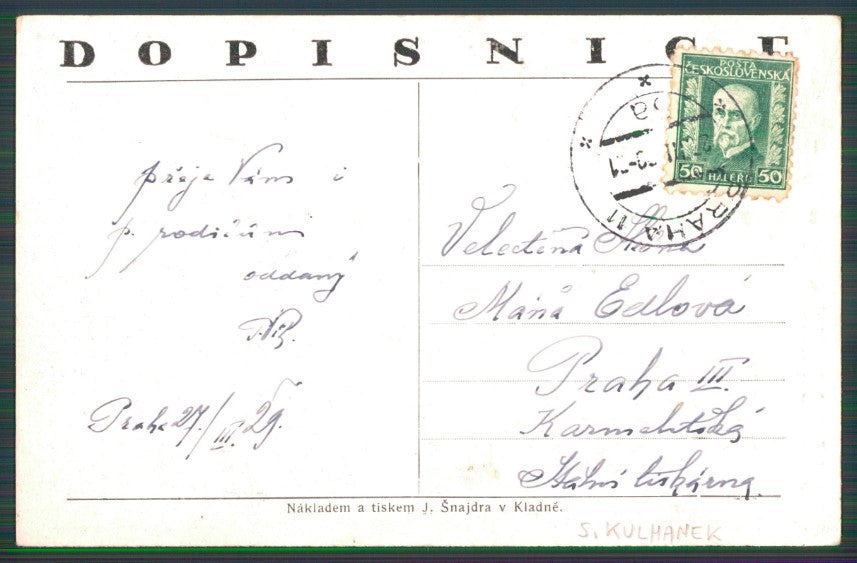 DOPISNICE
POSTA
ČESKOSLOVENSKÁ
50 HALÉŘŮ 50
PRAHA 11
přeje Vám i
p. rodičům
oddaný
Praha 27/III 29.
Velectěná Slečna
Máňa Edlová
Praha III.
Karmelitská
Státní tiskárna.
Nákladem a tiskem J. Šnajdra v Kladně.
S. KULHANEK